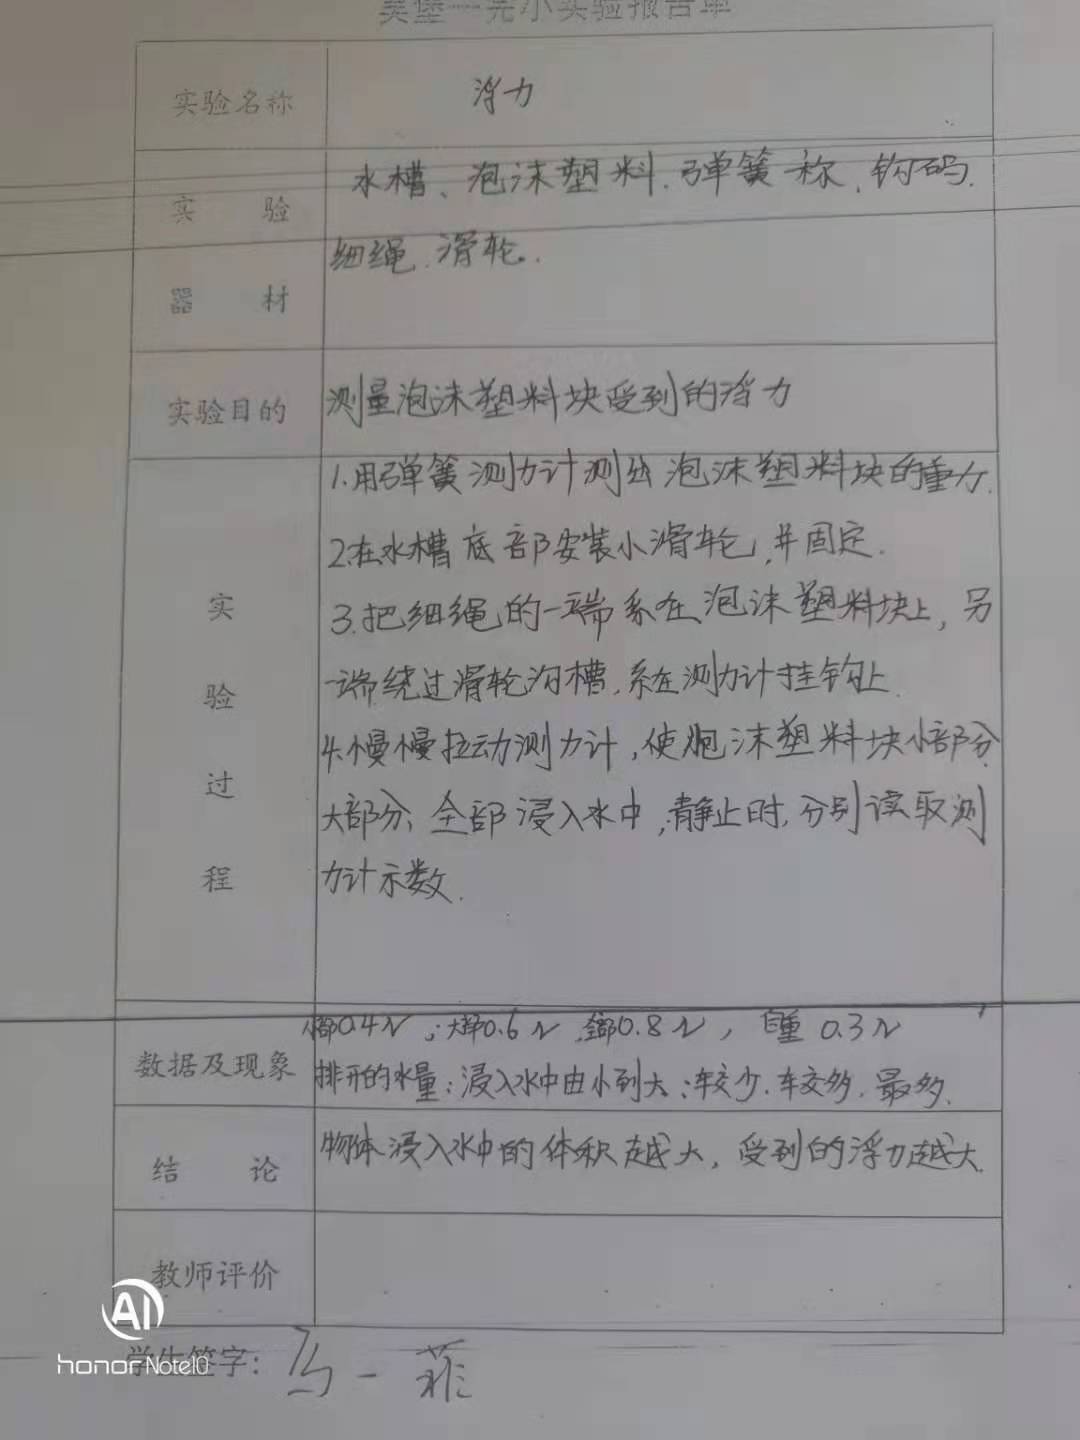 吴堡一完小实验报告单
实验名称
浮力
实验
器材
水槽、泡沫塑料、弹簧称、钩码、
细绳、滑轮。
实验目的
测量泡沫塑料块受到的浮力
实验过程
1.用弹簧测力计测出泡沫塑料块的重力.
2.在水槽底部安装小滑轮,并固定.
3.把细绳的一端系在泡沫塑料块上,另
一端绕过滑轮沟槽,系在测力计挂钩上.
4.慢慢拉动测力计,使泡沫塑料块小部分、
大部分、全部浸入水中,静止时,分别读取测
力计示数.
数据及现象
小部0.4N;大部0.6N,全部0.8N,自重0.3N
排开的水量:浸入水中由小到大:较少.较多.最多.
结论
物体浸入水中的体积越大,受到的浮力越大.
教师评价
学生签字:马一菲
AI
honor Note10